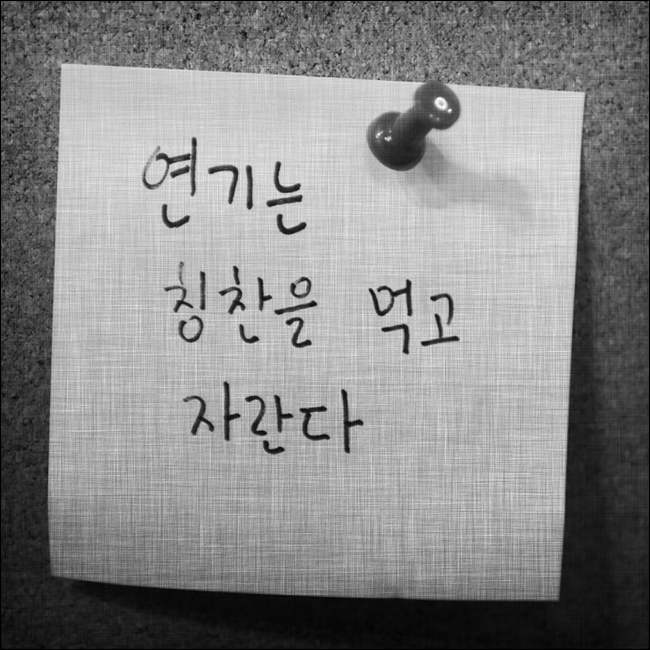 연기는
칭찬을 먹고
자란다